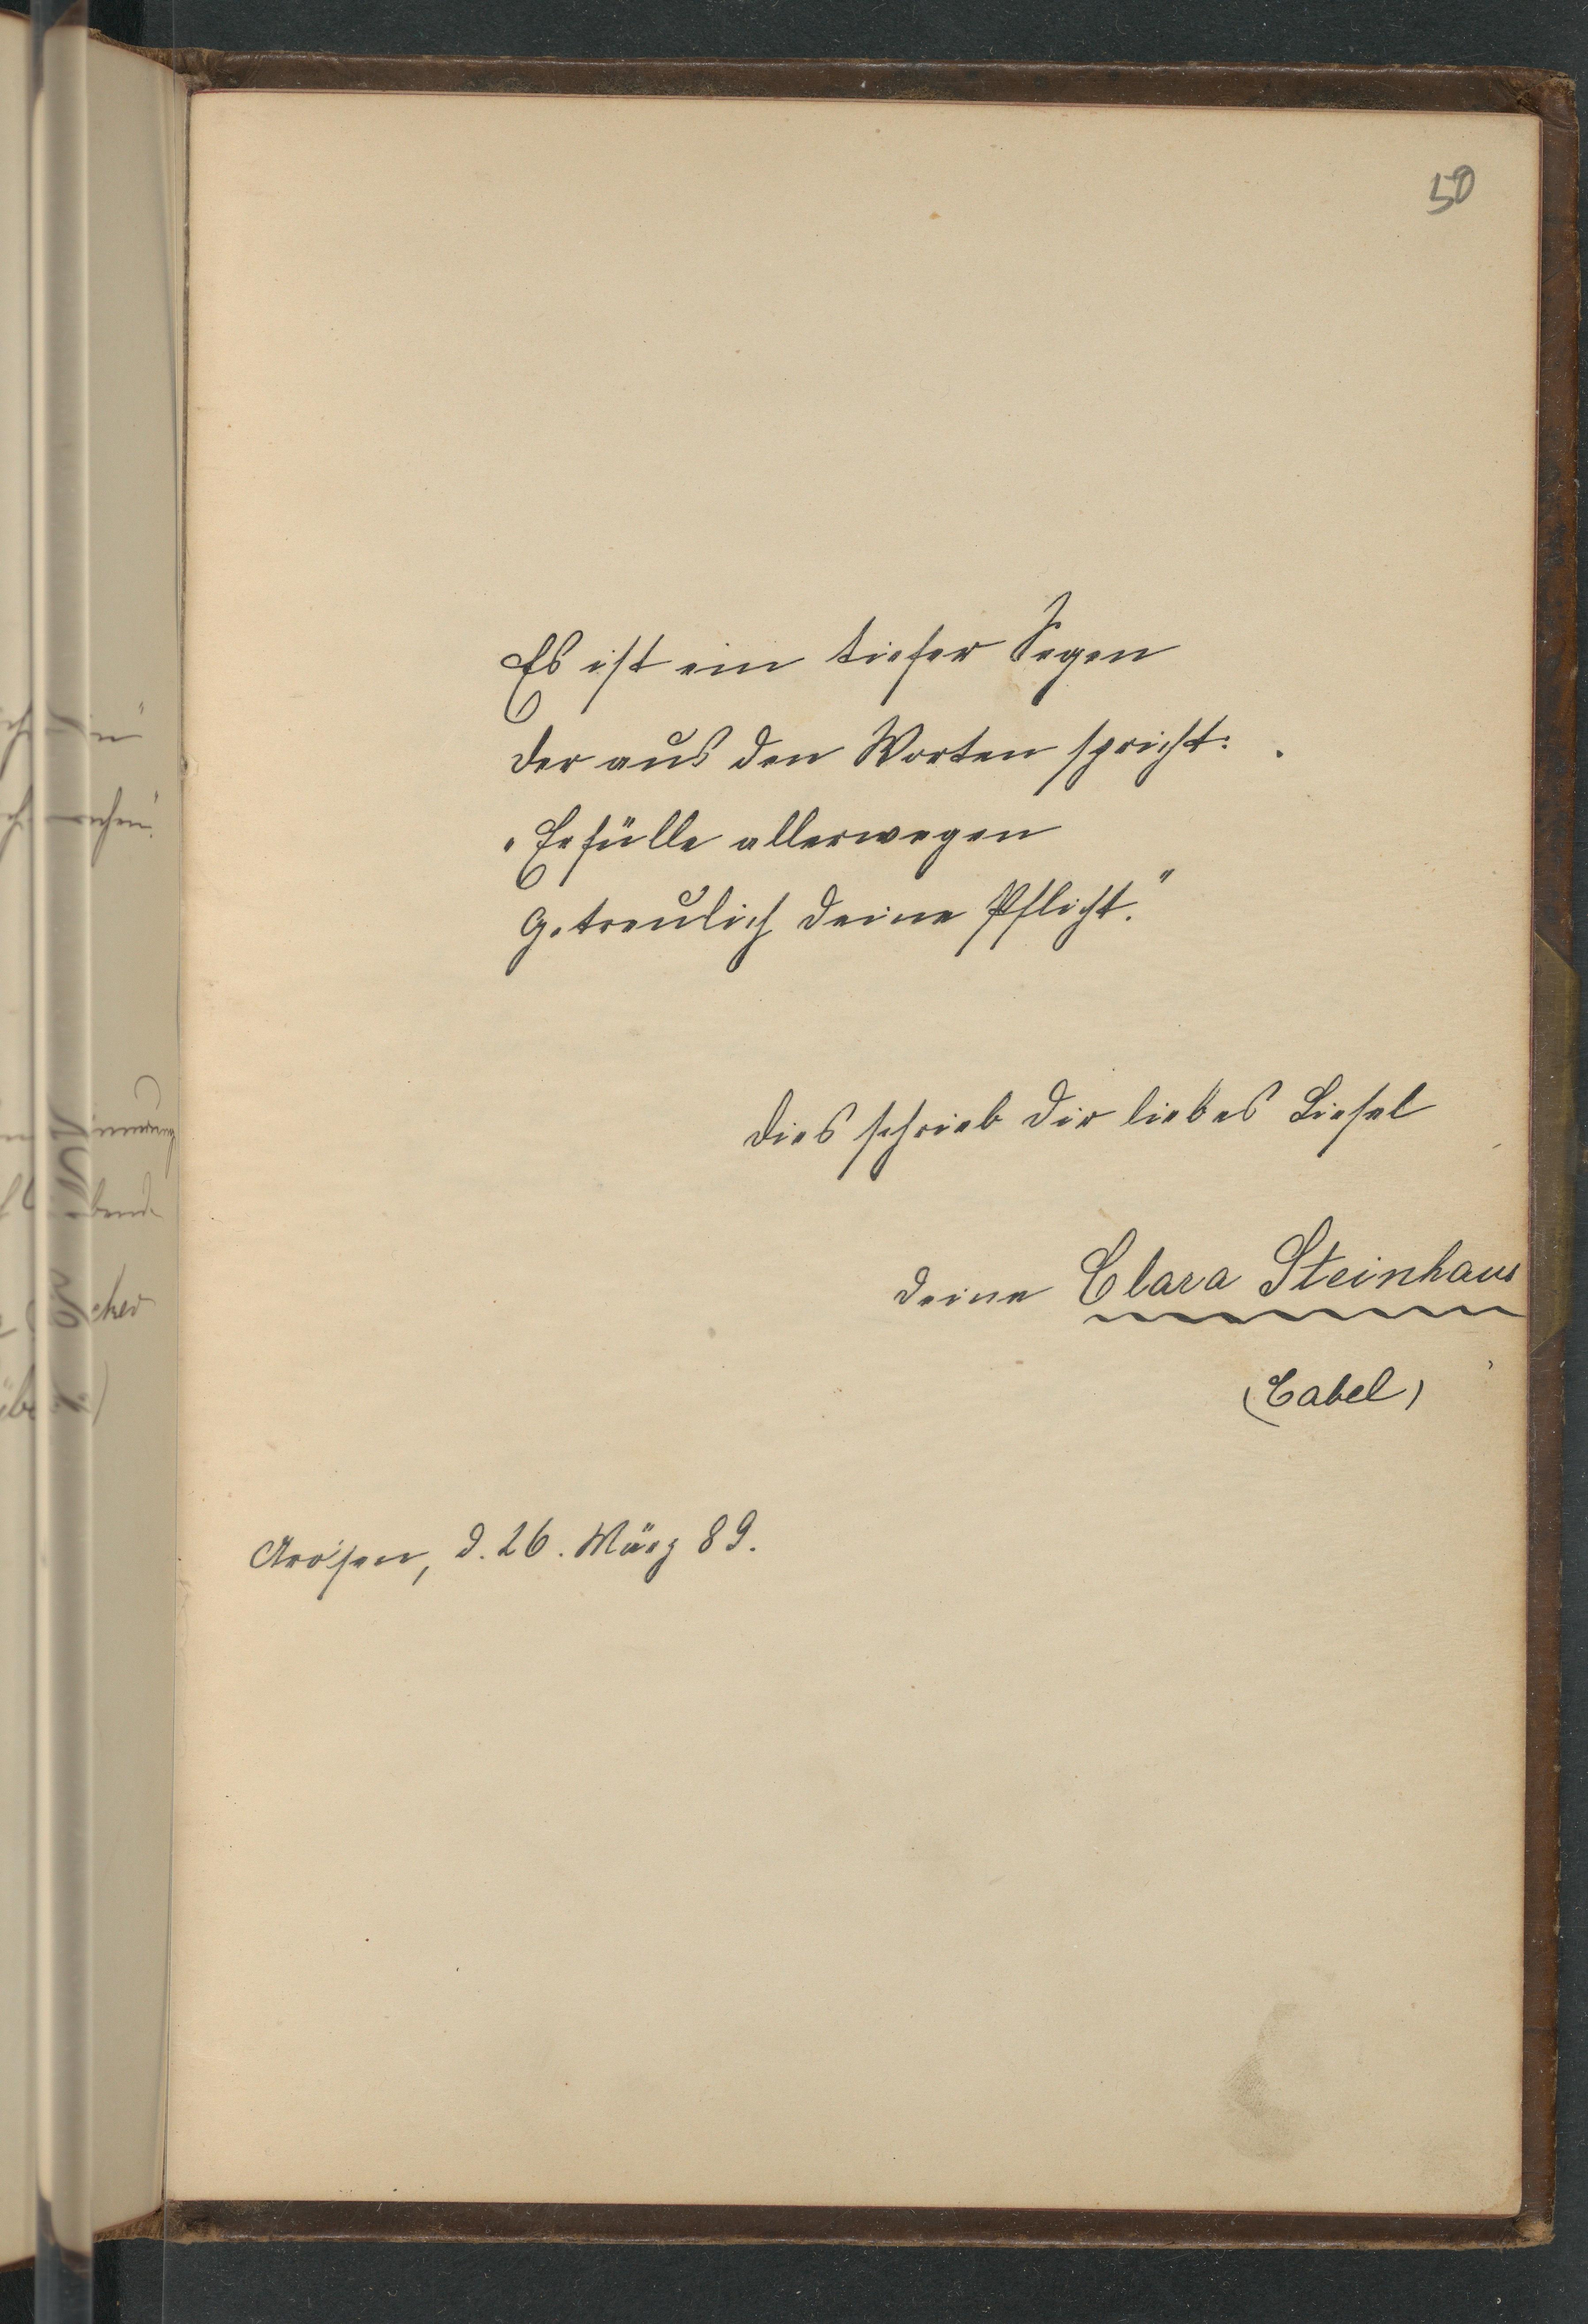 50
Es ist ein tiefer Segen
Der aus den Worten spricht:
„Erfülle allerwegen
Getreulich deine Pflicht."
Dies schrieb dir liebes Liesel
deine Clara Steinhaus
(Cabel)
Arolsen, d. 26. März 89.